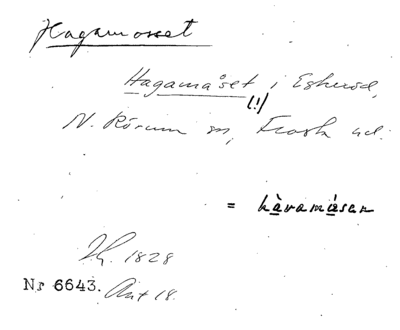 Hagamosset
Hagamåset i Eskersd,
(!)
N. Rörum sn, Frosta hd.
= hàvamàsan
1828
Nr 6643. Akt 18.